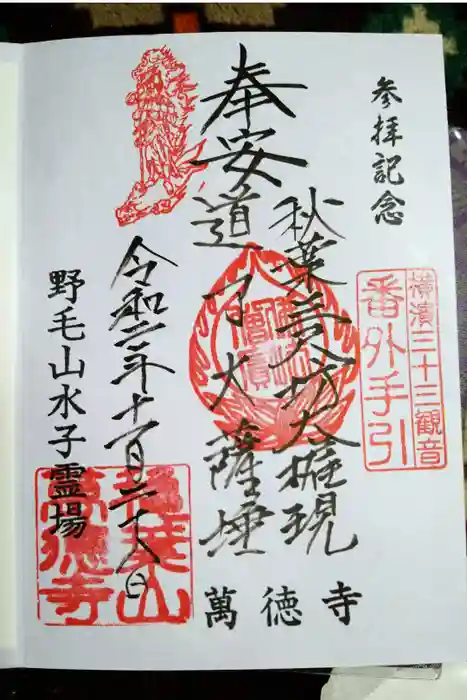 参拝記念
横濱三十三観音
番外手引
奉安
秋葉三尺坊大権現
道了大薩埵
萬徳寺
令和二年十一月二十八日
野毛山水子霊場
秋葉山
萬徳寺